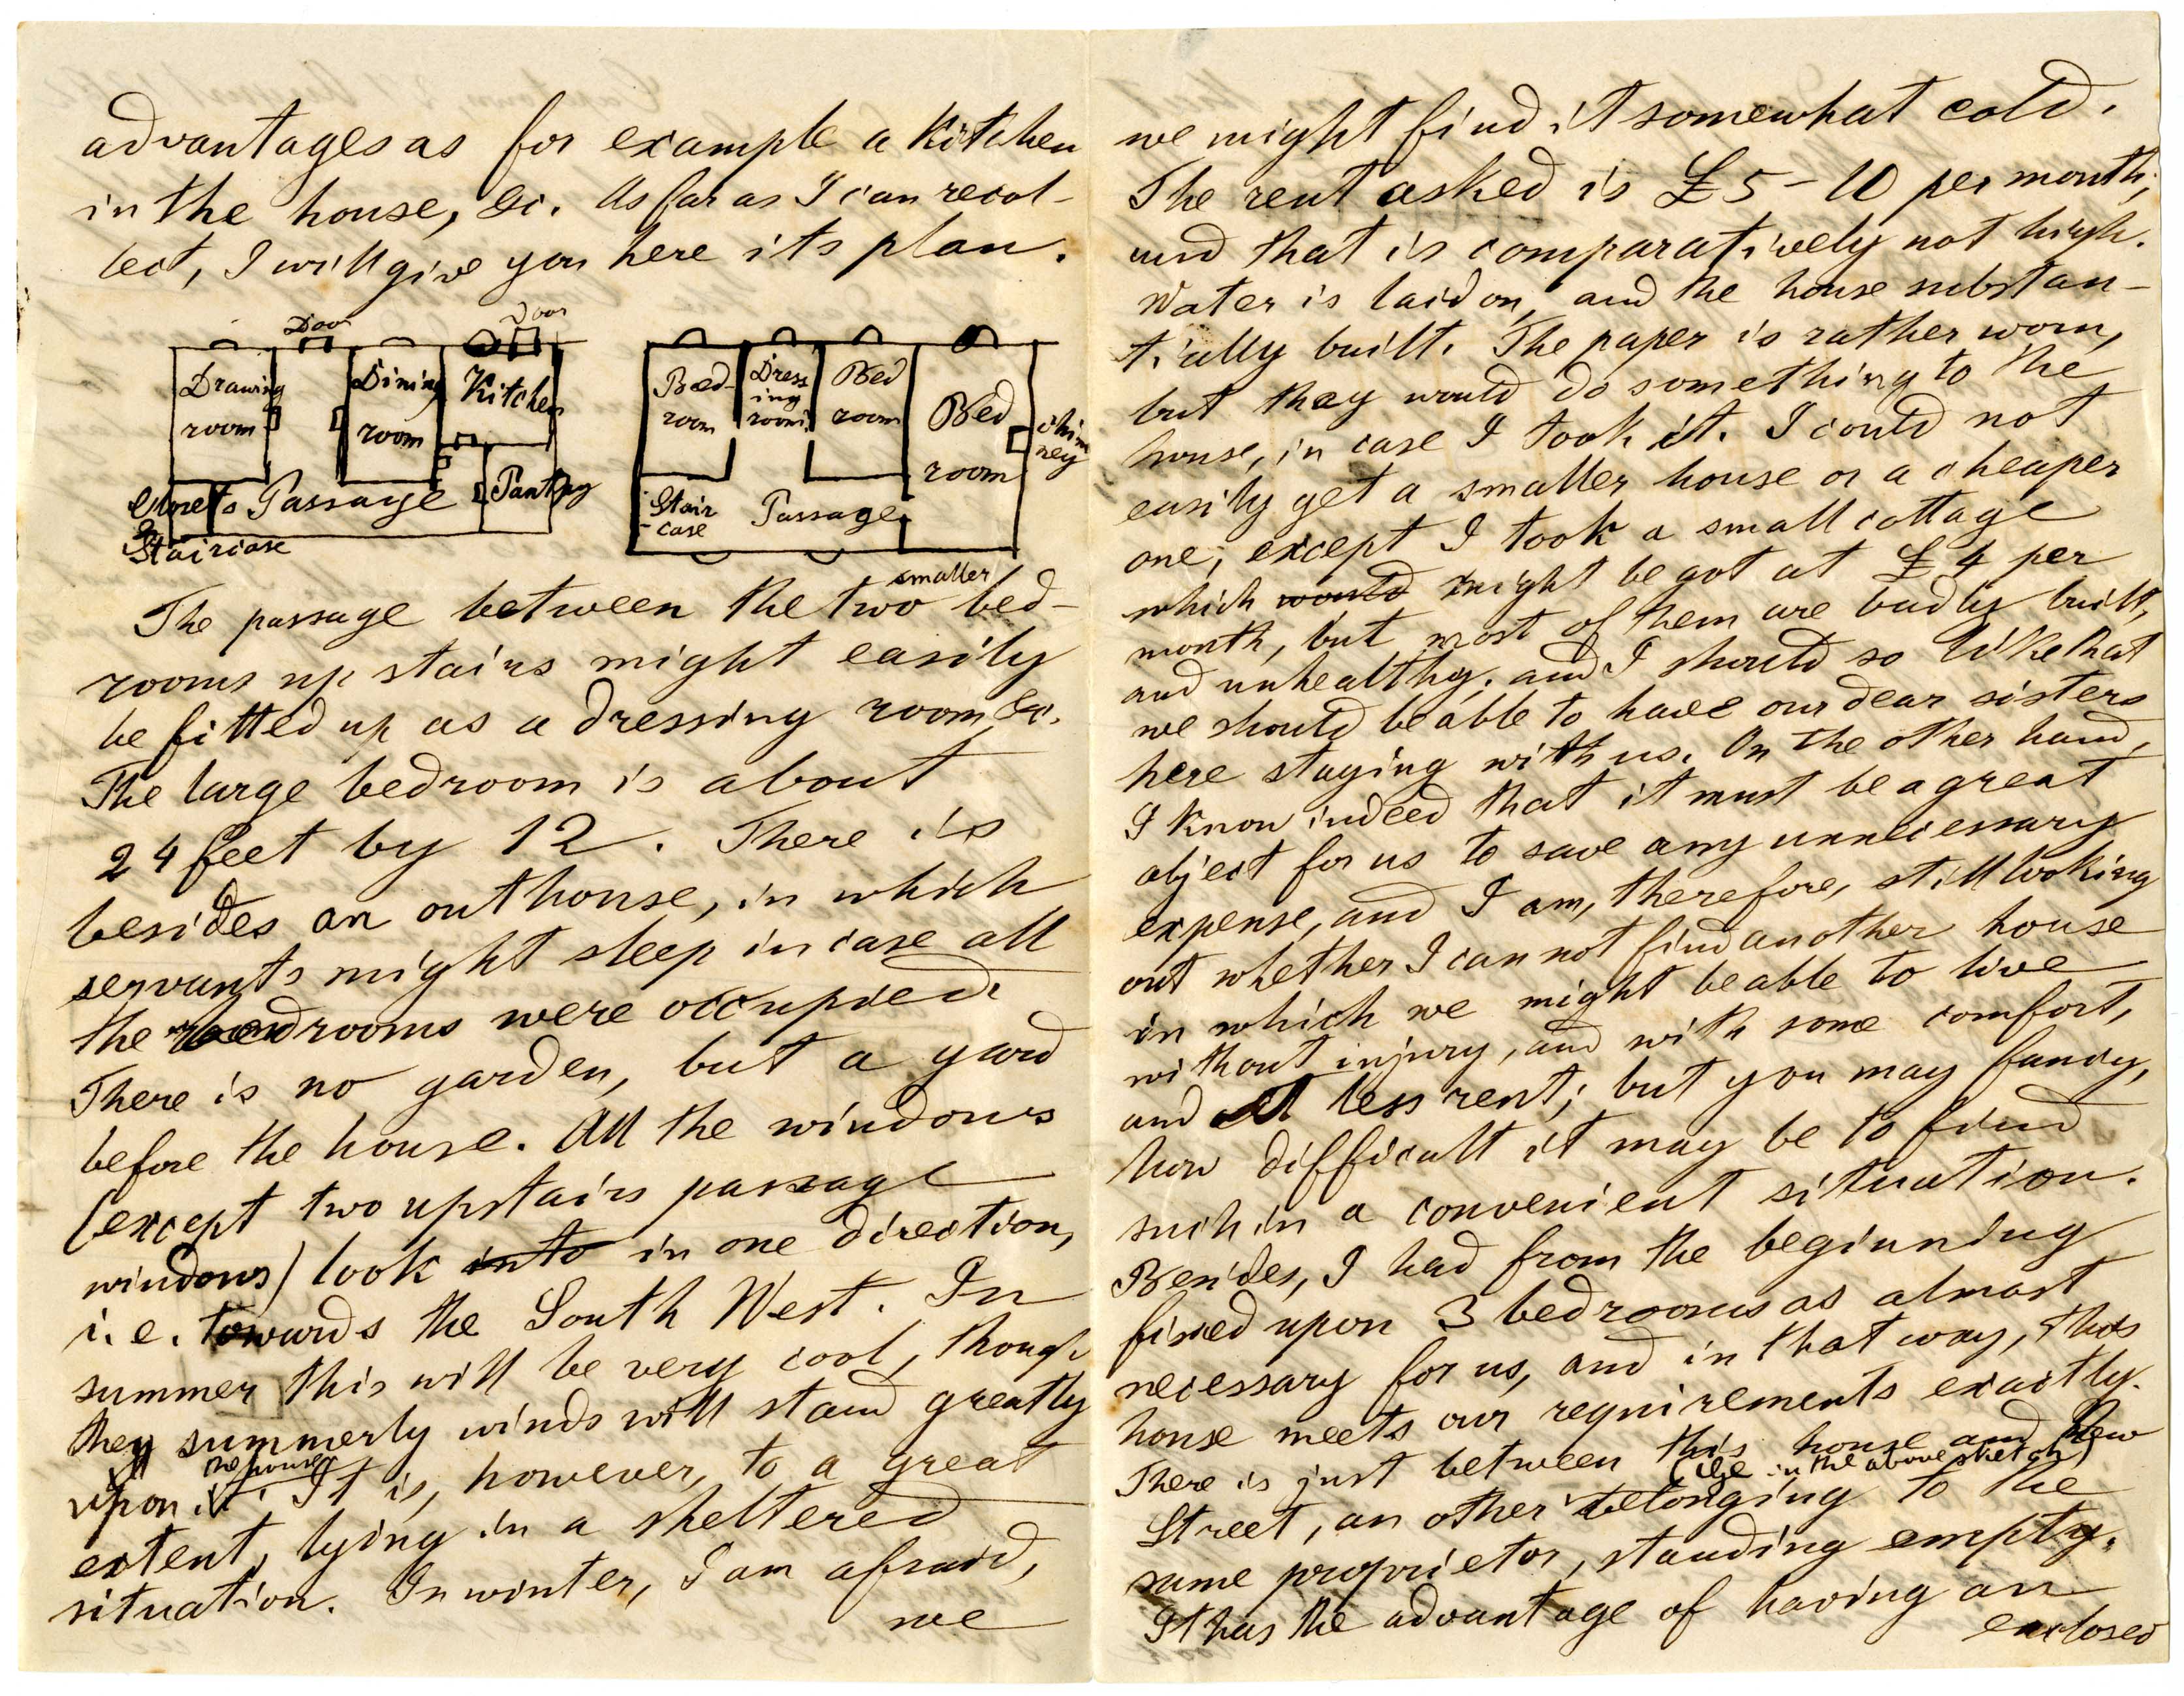 advantages as for example a kitchen
in the house, &c. As far as I can recol-
lect, I will give you here its plan.
Door
Door
Drawing
room
Dining
room
Kitchen
Closets
&
Staircase
Passage
Pantry
Bed-
room
Dress
ing
room
Bed
room
Bed
room
chim
ney
Stair
case
Passage
smaller
The passage between the two bed-
rooms up stairs might easily
be fitted up as a dressing room &c.
The large bedroom is about
24 feet by 12. There is
besides an outhouse, in which
servants might sleep in case all
the bedrooms were occupied.
There is no garden, but a yard
before the house. All the windows
(except two upstairs passage
windows) look into in one direction,
i.e. towards the South West. In
summer this will be very cool, though
they summerly winds will stand greatly
the house
upon it. It is, however, to a great
extent, lying in a sheltered
situation. In winter, I am afraid,
we
we might find it somewhat cold.
The rent asked is £5-10 per month,
and that is comparatively not high.
Water is laid on, and the house substan-
tially built. The paper is rather worn,
but they would do something to the
house, in case I took it. I could not
easily get a smaller house or a cheaper
one, except I took a small cottage
which would might be got at £4 per
month, but most of them are badly built,
and unhealthy; and I should so like that
we should be able to have our dear sisters
here staying with us. On the other hand,
I know indeed that it must be a great
object for us to save any unnecessary
expense, and I am, therefore, still looking
out whether I can not find another house
in which we might be able to live
without injury, and with some comfort,
and at less rent; but you may fancy,
how difficult it may be to find
such in a convenient situation.
Besides, I had from the beginning
fixed upon 3 bedrooms as almost
necessary for us, and in that way, this
house meets our requirements exactly.
There is just between this house and New
in the above sketch)
Street, an other belonging to the
same proprietor, standing empty.
It has the advantage of having an
enclosed